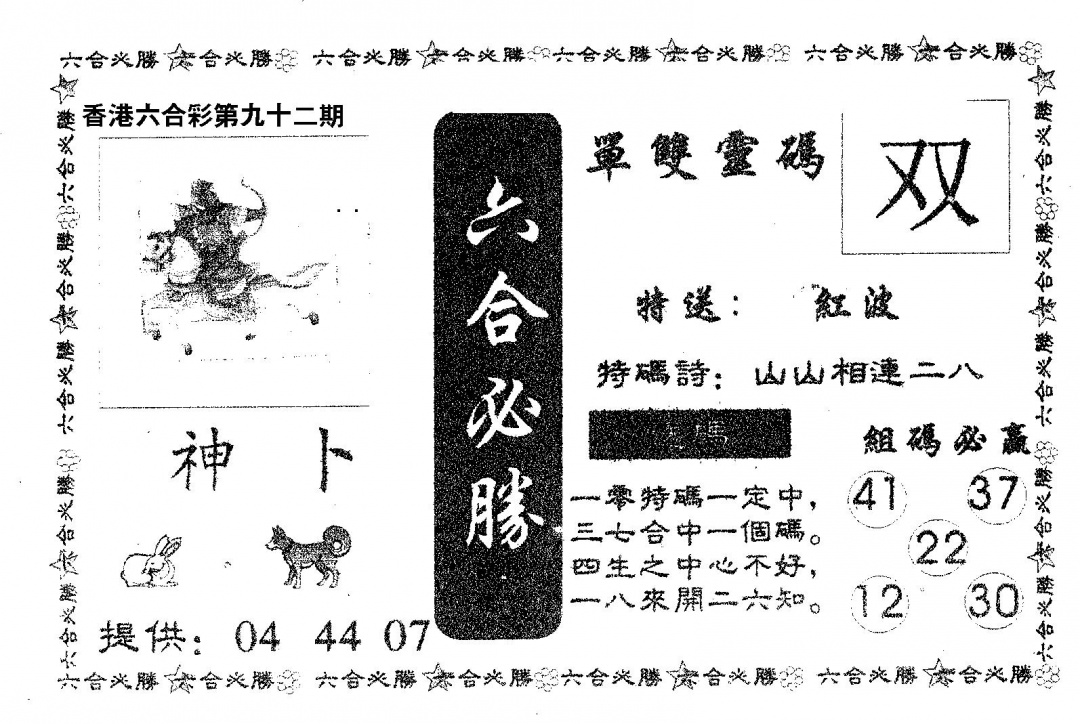 六合必勝 六合必勝 六合必勝 六合必勝 六合必勝 六合必勝 六合必勝 六合必勝
六合必勝 六合必勝 六合必勝 六合必勝 六合必勝
香港六合彩第九十二期
神卜
提供：04 44 07
六合必勝
單雙靈碼
双
特送：紅波
特碼詩：山山相連二八。
碼
一零特碼一定中，
三七合中一個碼。
四生之中心不好，
一八來開二六知。
組碼必贏
41 37
22
12 30
六合必勝 六合必勝 六合必勝 六合必勝 六合必勝
六合必勝 六合必勝 六合必勝 六合必勝 六合必勝 六合必勝 六合必勝 六合必勝